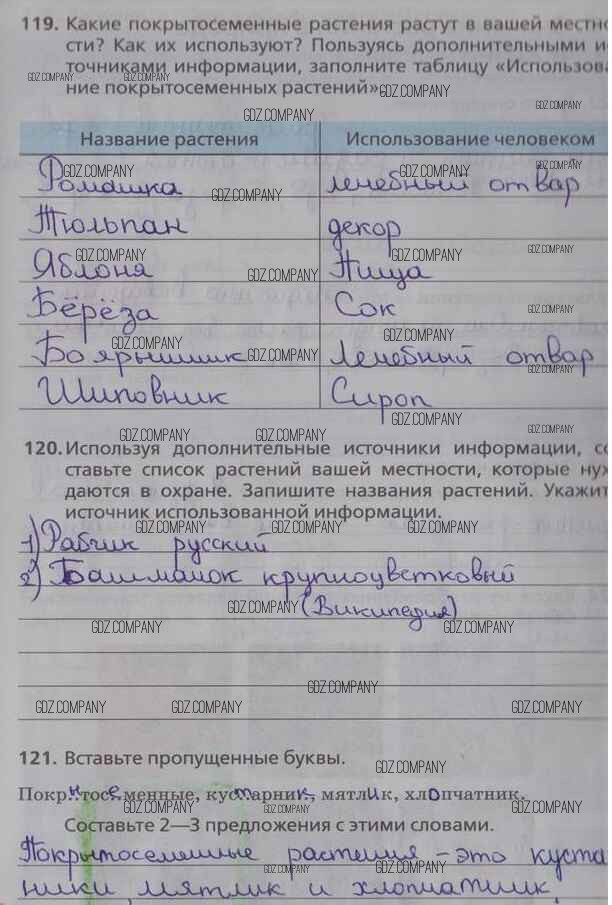 119. Какие покрытосеменные растения растут в вашей местно
сти? Как их используют? Пользуясь дополнительными и
точниками информации, заполните таблицу «Использова
ние покрытосеменных растений».
Название растения Использование человеком
Ромашка лечебный отвар
Тюльпан декор
Яблоня Пища
Берёза Сок
Боярышник Лечебный отвар
Шиповник Сироп
120. Используя дополнительные источники информации, со
ставьте список растений вашей местности, которые нуж
даются в охране. Запишите названия растений. Укажит
источник использованной информации.
1) Рябчик русский
2) Башмачок крупноцветковый
(Википедия)
121. Вставьте пропущенные буквы.
Покрытосеменные, кустарник, мятлик, хлопчатник.
Составьте 2—3 предложения с этими словами.
Покрытосеменные растения - это куста
ники, мятлик и хлопчатник.
GDZ.COMPANY